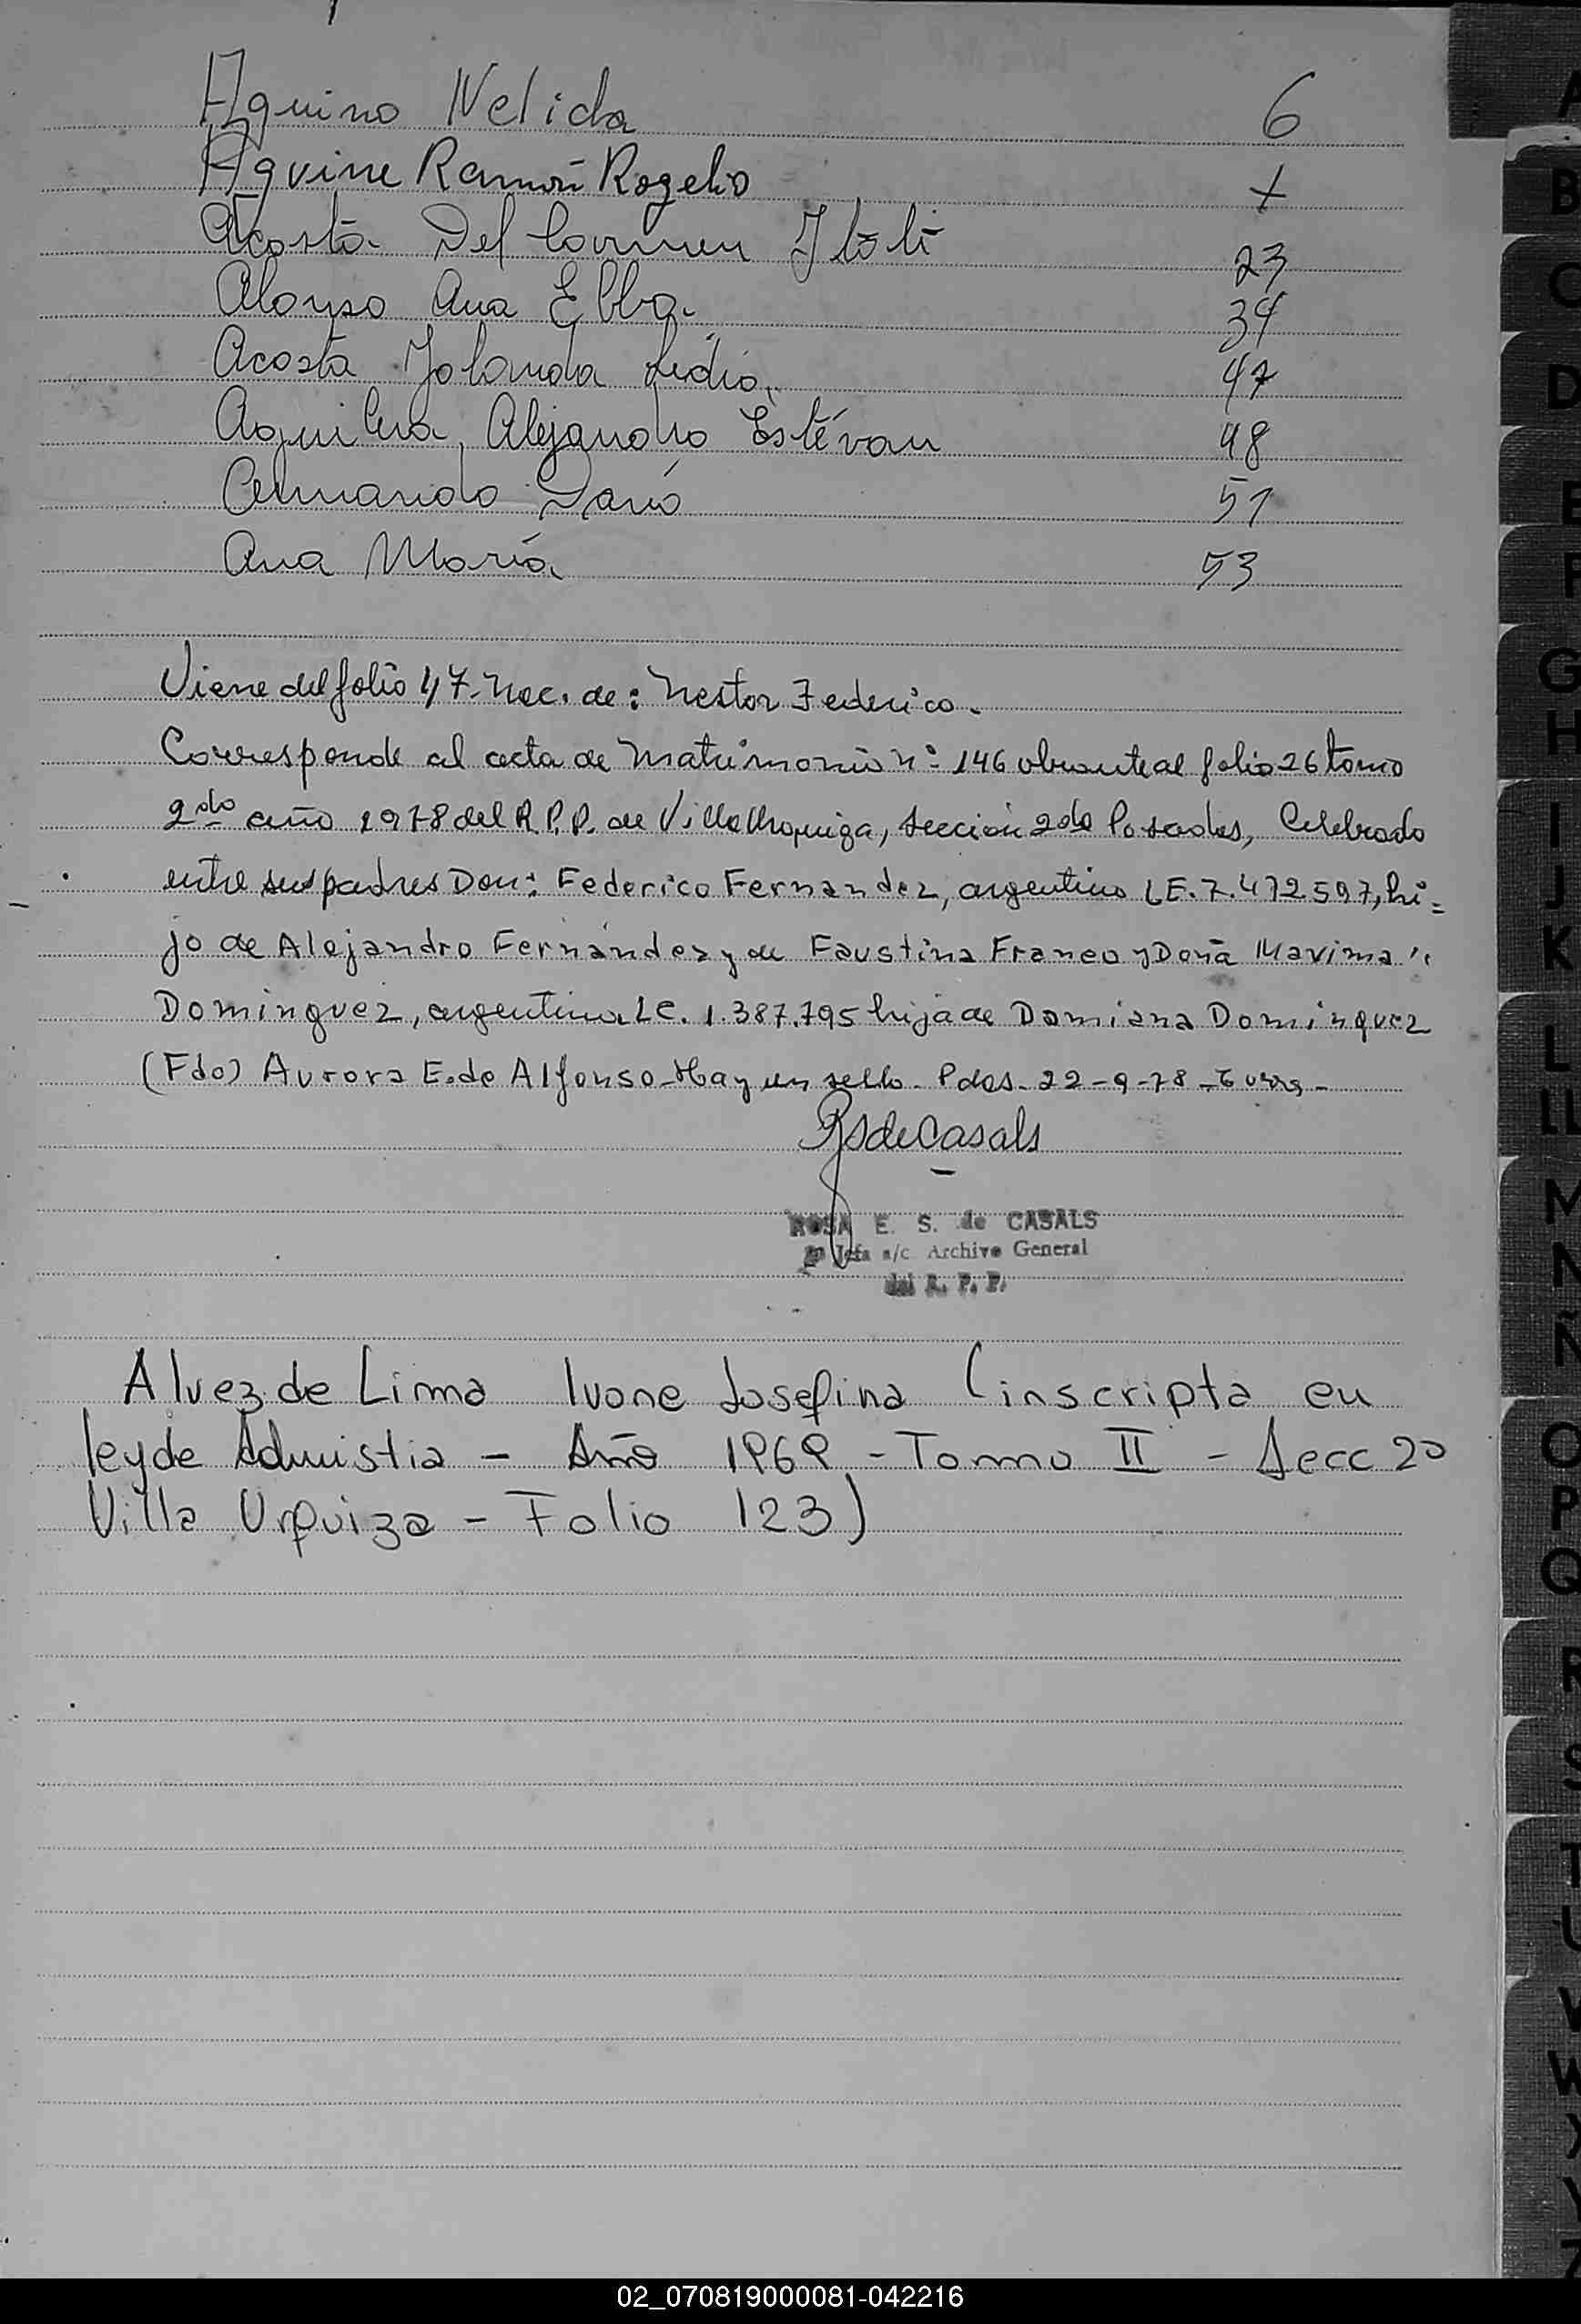 Aquino Nelida 6
Aquine Ramón Rogelio +
Acosta Del Carmen Itati 23
Alonso Ana Elba. 34
Acosta Jolanda Lidia. 47
Aguilera, Alejandro Estévan 48
Armando Darío 51
Ana María 53
Viene del folio 47. Nac. de: Nestor Federico.
Corresponde al acta de Matrimonio nº 146 obrante al folio 26 tomo
2do año 1978 del R.P.P. de Villa Urquiza, Sección 2da Posadas, Celebrado
entre sus padres Don: Federico Fernandez, argentino LE. 7.472.597, hi=
jo de Alejandro Fernández y de Faustina Franco y Doña Maxima
Dominguez, argentina LC. 1.387.795 hija de Damiana Dominguez
(Fdo) Aurora E. de Alfonso - Hay un sello - Pdas. 22-9-78 -
RSdeCasals
ROSA E. S. de CASALS
Jefa a/c Archivo General
del R. P. P.
Alvez de Lima Ivone Josefina (inscripta en
ley de Admistia - Año 1969 - Tomo II - Secc 2º
Villa Urquiza - Folio 123)
A
B
C
D
E
F
G
H
I
J
K
L
LL
M
N
Ñ
O
P
Q
R
S
T
U
V
W
X
Y
Z
02_070819000081-042216